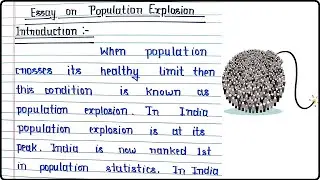 Essay on Population Explosion
Introduction :-
When population
crosses its healthy limit then
this condition is known as
population explosion. In India
population explosion is at its
peak. India is now ranked 1st
in population statistics. In India